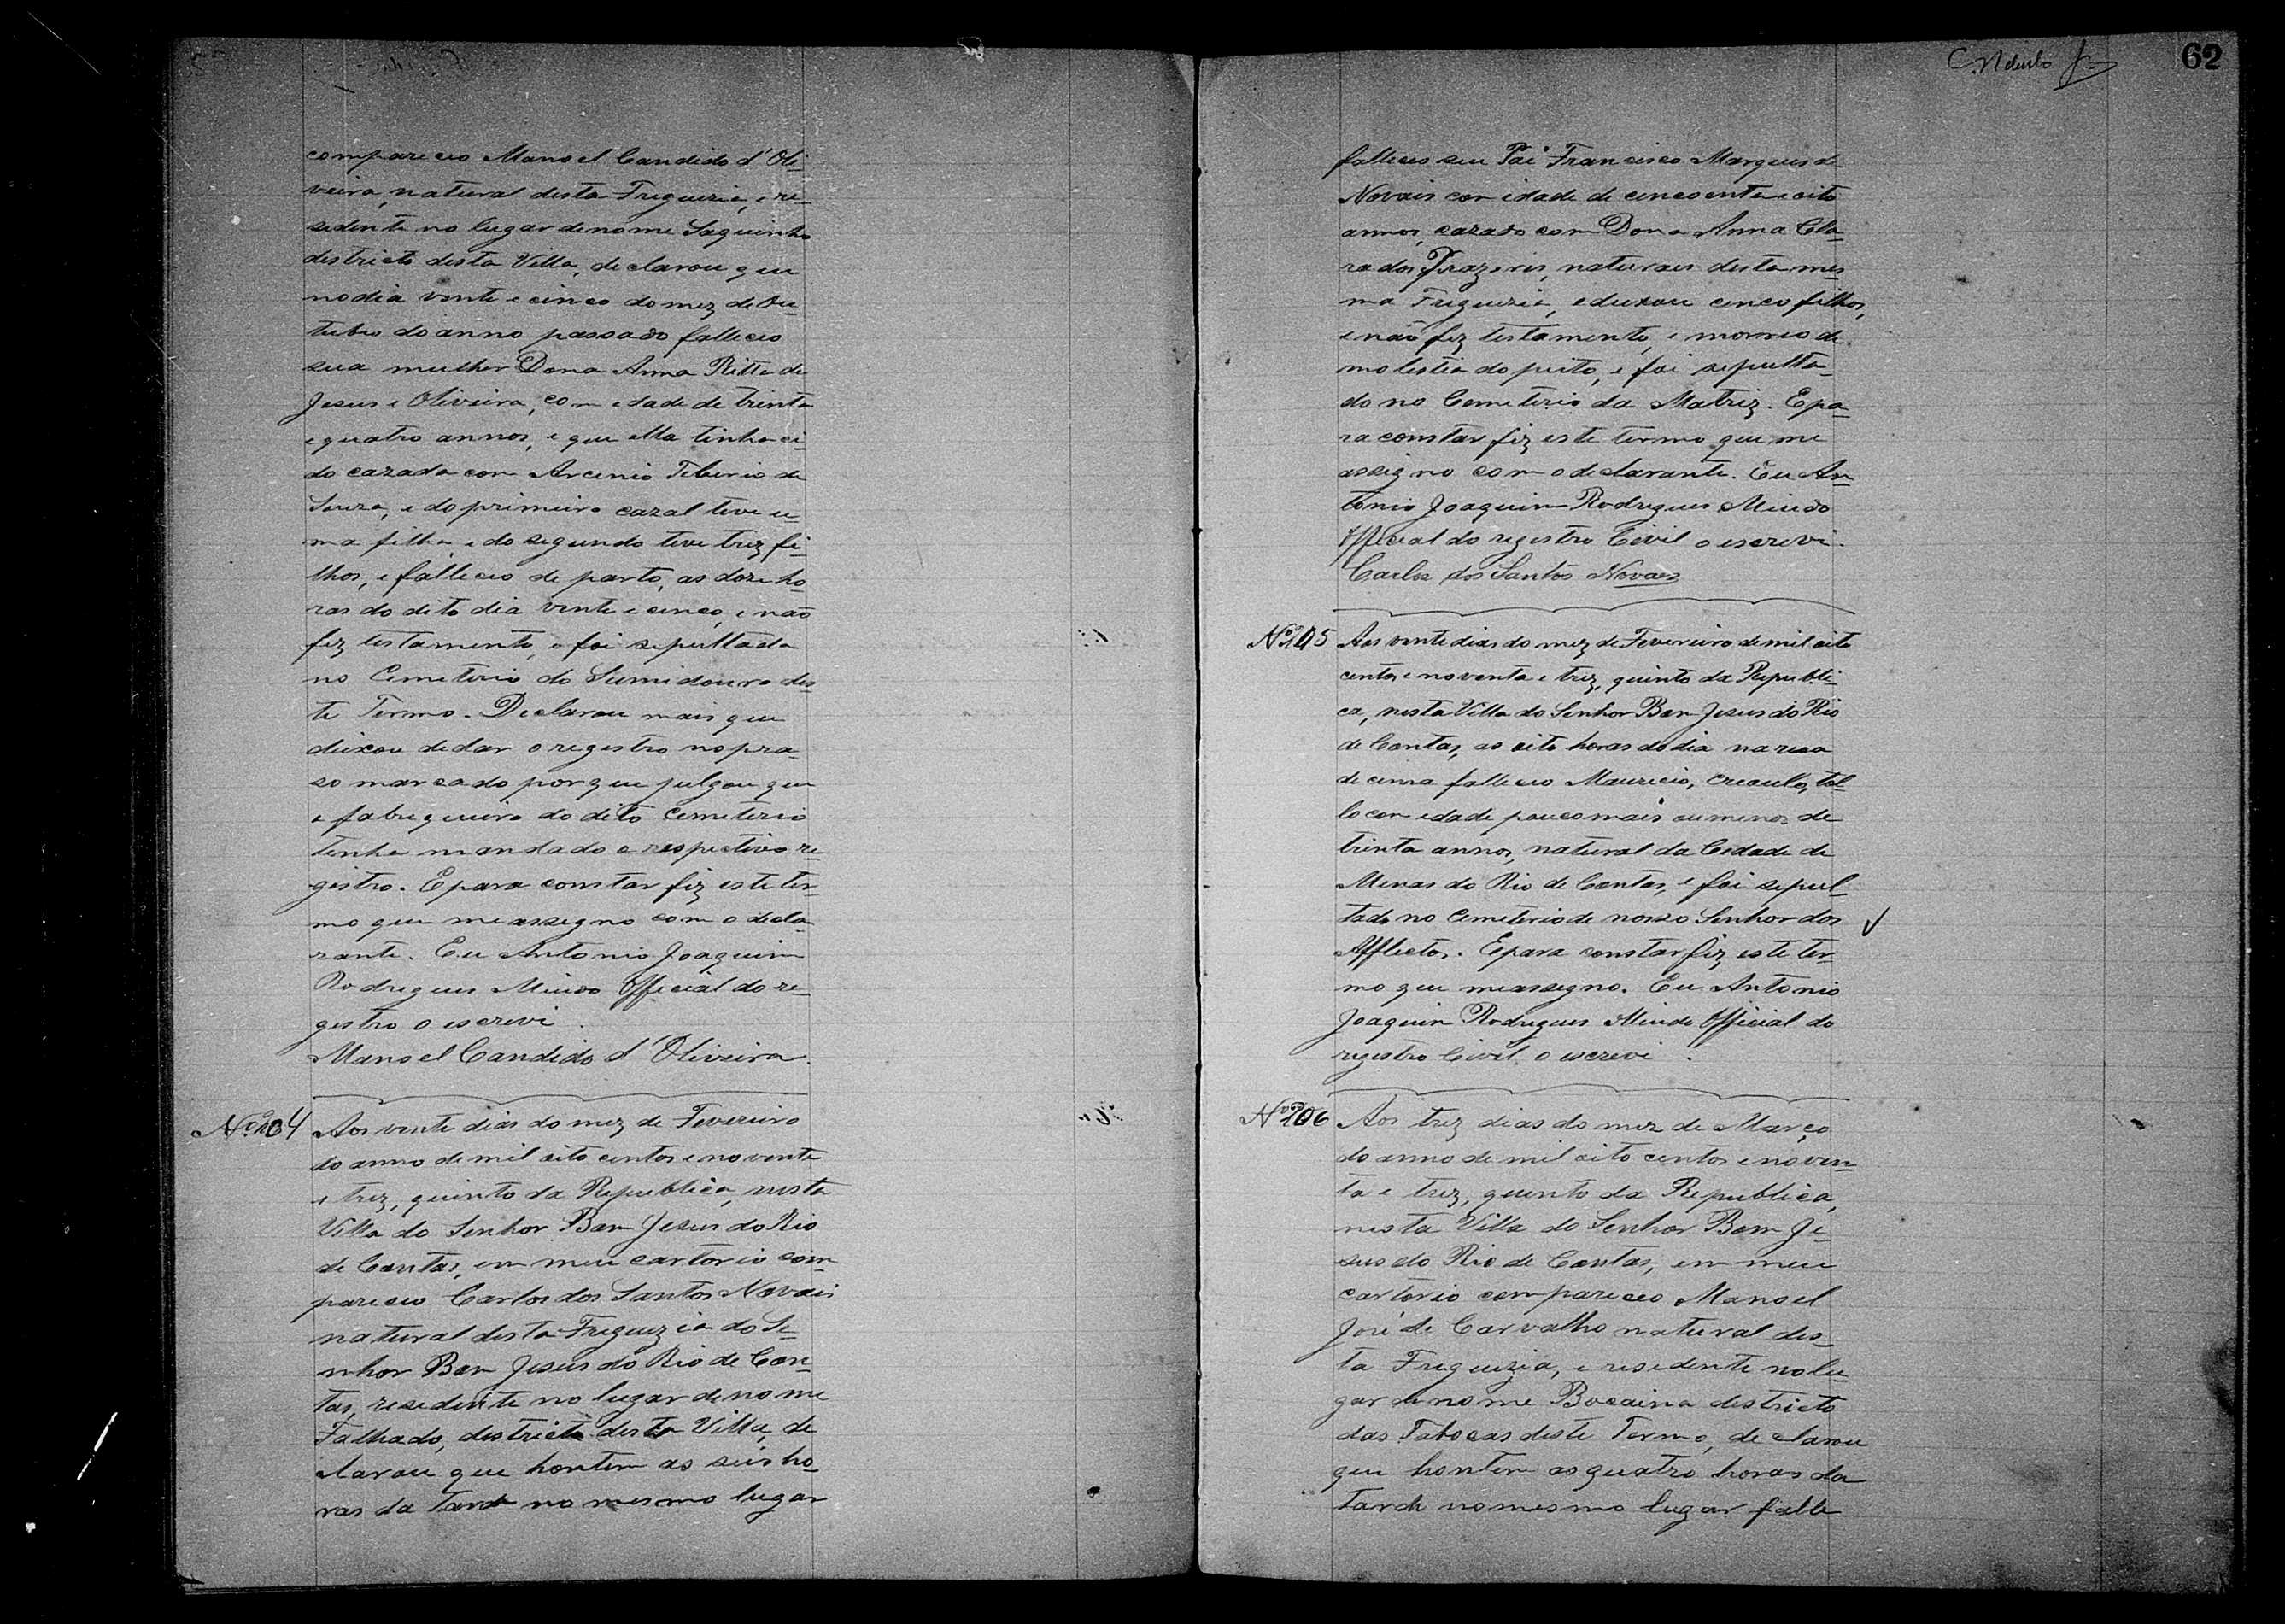 compareceo Manoel Candido d'Oli-
veira, natural desta Freguezia, e re-
zidente no lugar denome Saquinho
districto desta Villa, declarou que
no dia vinte e cinco do mez de Ou-
tubro do anno passado falleceo
sua mulher Dona Anna Ritta de
Jesus e Oliveira, com edade de trinta
e quatro annos, e que ella tinha ci-
do cazada com Arcenio Teburio de
Souza, e do primeiro cazal teve u-
ma filha, e do segundo teve trez fi-
lhos, e falleceo de parto, as doze ho-
ras do dito dia vinte e cinco, e não
fez testamento, e foi sepultada
no Cemeterio do Sumidouro des-
te Termo. Declarou mais que
deixou dedar o registro no pra-
so marcado porque julgou que
o fabriqueiro do dito Cemeterio
tenha mandado o respectivo re-
gistro. E para constar fiz este ter-
mo que me assegno com o decla-
rante. Eu Antonio Joaquim
Rodrigues Miudo Official do re-
gestro o escrevi.
Manoel Candido d'Oliveira.
Nº 104 Aos vinte dias do mez de Fevereiro
do anno de mil oito centos e novente
e trez, quinto da Republica, nesta
Villa do Senhor Bom Jesus do Rio
de Contas, em meu cartorio com
pareceo Carlos dos Santos Novais
natural desta Freguezia do Se-
nhor Bom Jesus do Rio de Con-
tas, resedente no lugar denome
Falhado, districto desta Villa, de
clarou que hontem as seis ho-
ras da tarde no mesmo lugar
62
falleceo seu Pai Francisco Marques de
Novais com idade de cincoenta e oito
annos, cazado com Dona Anna Cla-
ra dos Prazeres, naturaes desta mes-
ma Freguezia, e deixou cinco filhos,
e não fez testamento, e morreo de
molestia do peito, e foi sepulta-
do no Cemeterio da Matriz. E pa-
ra constar fiz este termo que me
assigno com o declarante. Eu An-
tonio Joaquim Rodrigues Miudo
Official do registro Civil o escrevi.
Carlos dos Santos Novaes
Nº 105 Aos vinte dias do mez de Fevereiro demil oito
centos e noventa e trez, quinto da Republi-
ca, nesta Villa do Senhor Bom Jesus do Rio
de Contas, as oito horas do dia na rua
de cima falleceo Mauricio, creoulo, tol-
lo com edade pouco mais ou menos de
trinta annos, natural da Cidade de
Minas do Rio de Contas, e foi sepul-
tado no Cemeterio de nosso Senhor dos
Afflictos. E para constar fiz este ter-
mo que meassegno. Eu Antonio
Joaquim Rodrigues Miudo Official do
registro Civil o escrevi.
Nº 106 Aos trez dias do mez de Março
do anno de mil oito centos e noven-
ta e trez, quinto da Republica,
nesta Villa do Senhor Bom Je-
sus do Rio de Contas, em meu
cartorio compareceo Manoel
José de Carvalho natural des-
ta Freguezia, e resedente no lu-
gar denome Bocaina destricto
das Tabocas deste Termo, declarou
que hontem as quatro horas da
tarde no mesmo lugar falle